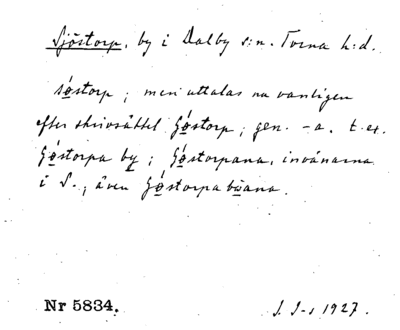 Sjöstorp, by i Dalby s:n. Torna h:d.
sø̀storp; men uttalas nu vanligen
efter skrivsättet Ʃø̀storp; gen. -a. t. ex.
Ʃø̀storpa by; Ʃø̀storpana, invånarna
i S.; även Ʃø̀storpa bøana.
Nr 5834.
1927.